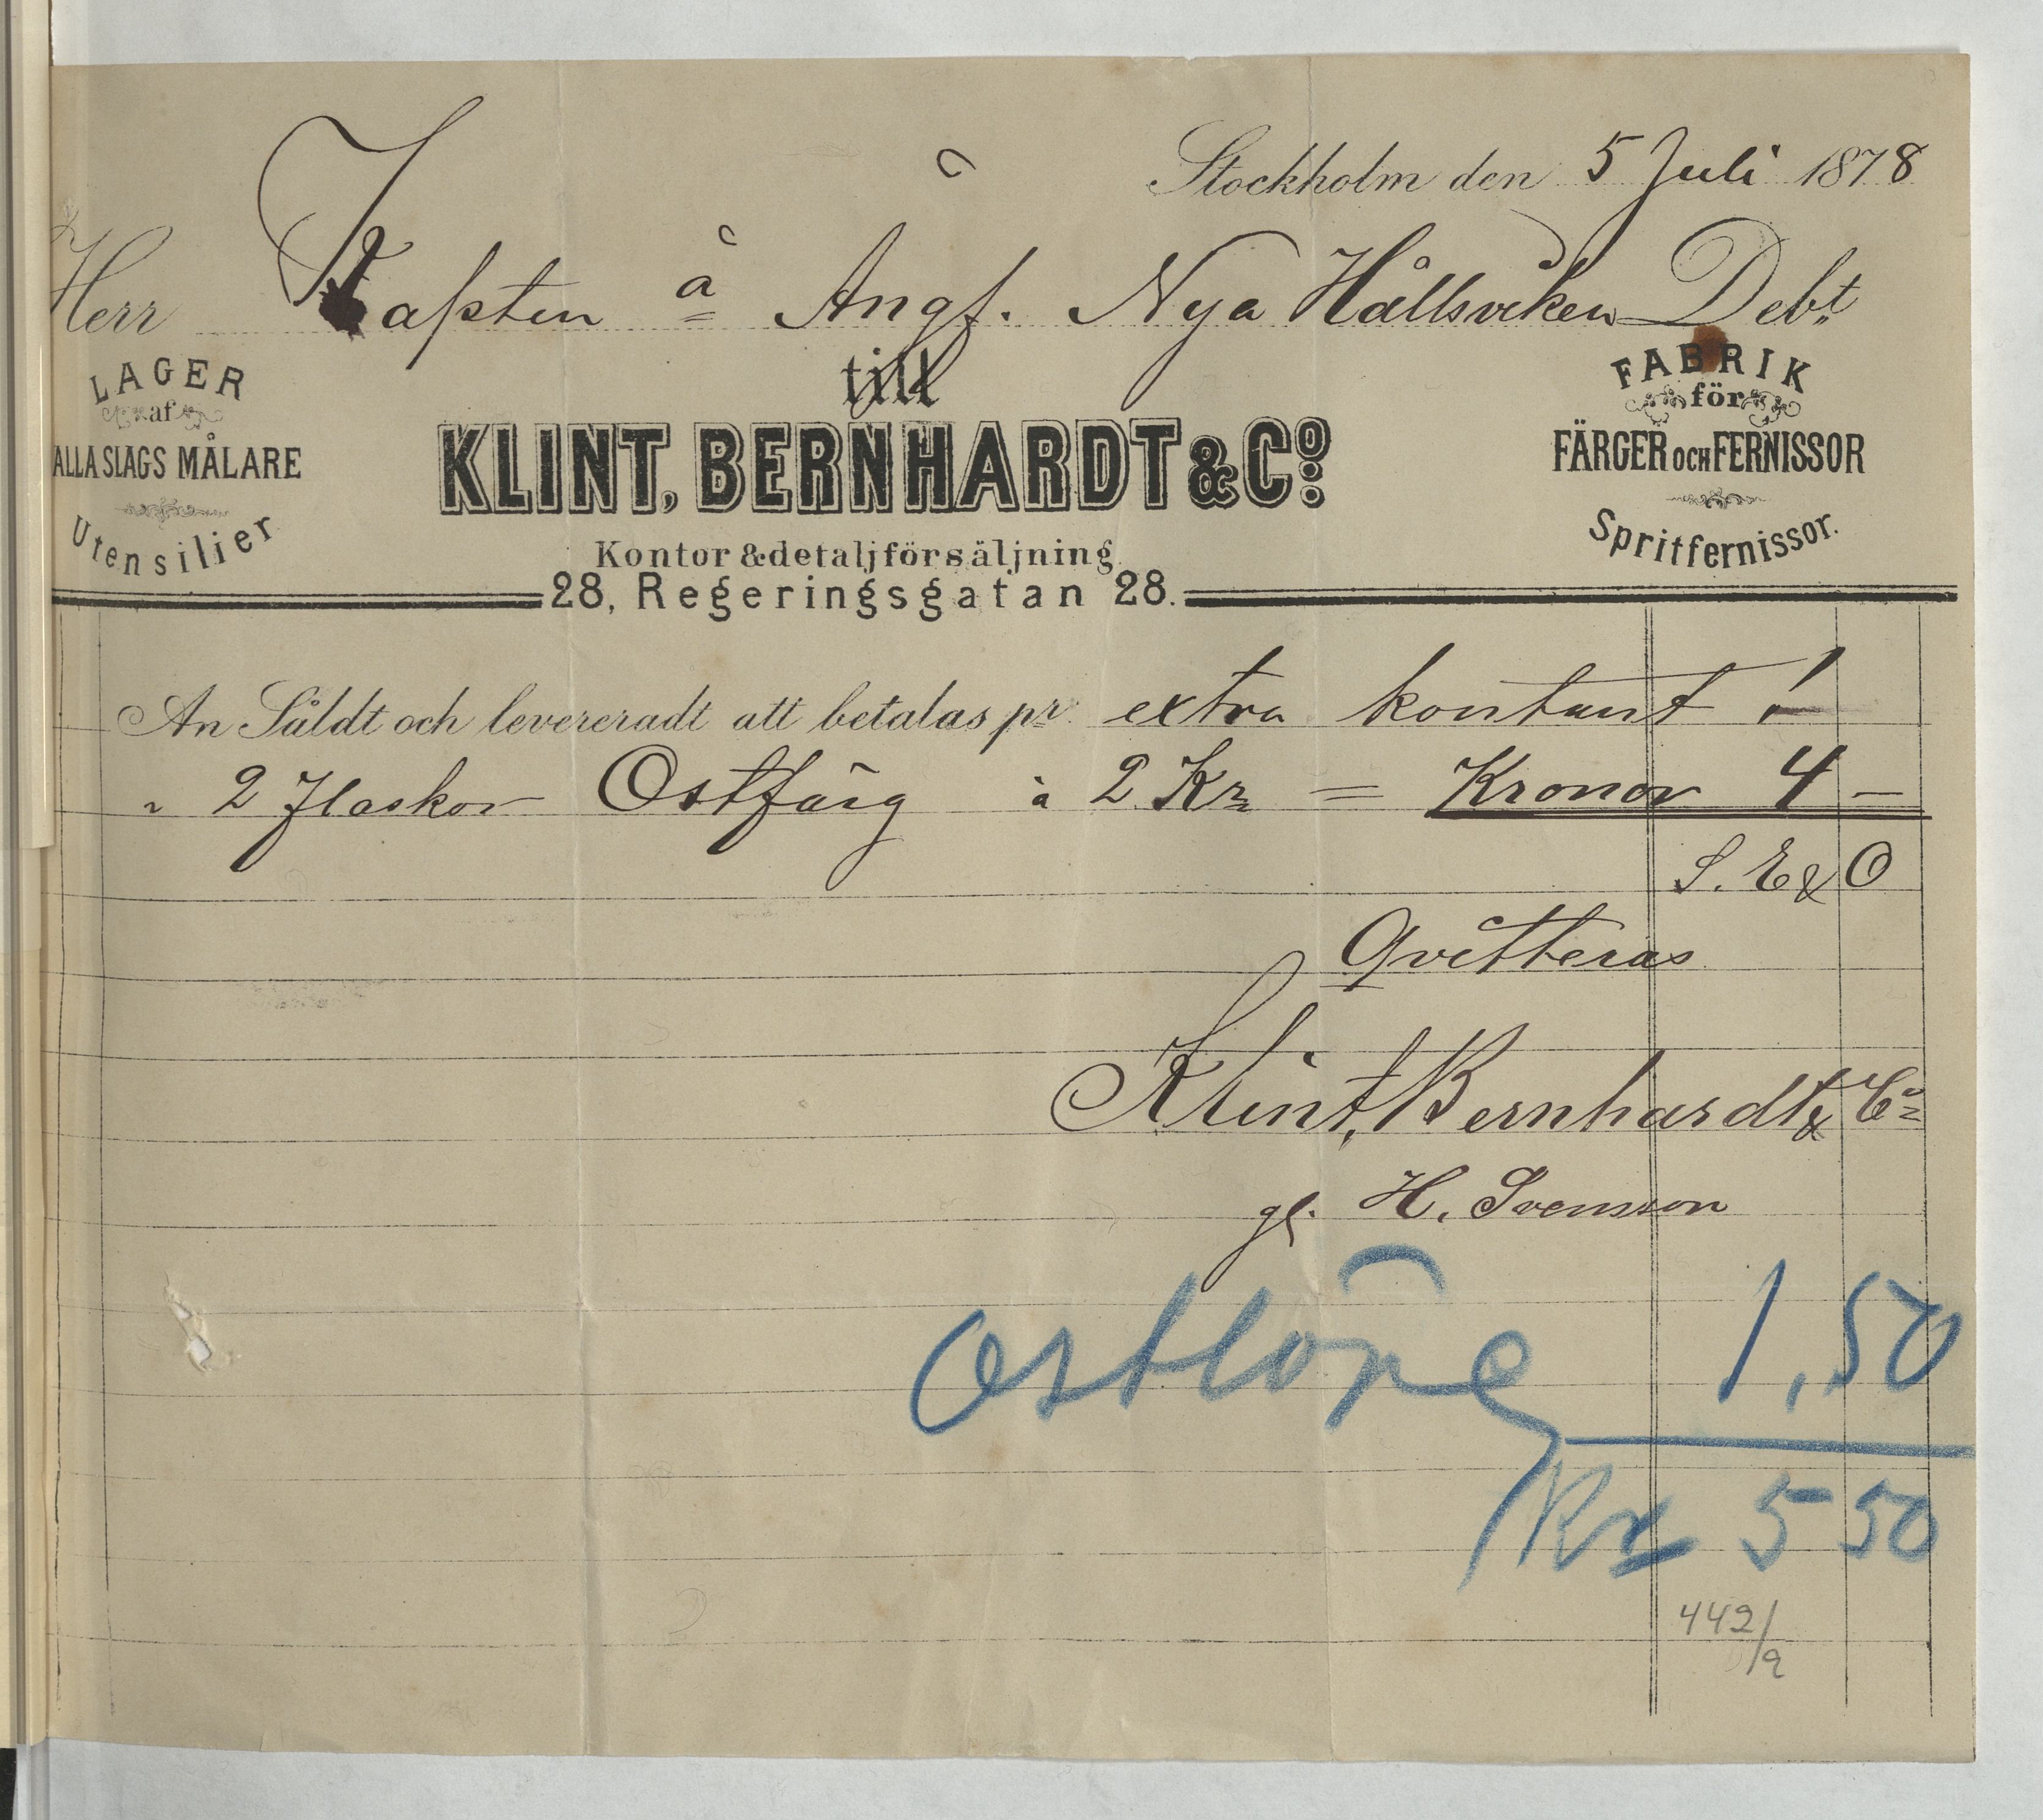 Stockholm den 5 Juli 1878
Herr Kapten å Ångf. Nya Hållsviken Debt
till
LAGER
af
ALLA SLAGS MÅLARE
Utensilier
KLINT, BERNHARDT & Co
Kontor & detaljförsäljning
28, Regeringsgatan 28.
FABRIK
för
FÄRGER OCH FERNISSOR
Spritfernissor.
An Såldt och levereradt att betalas pr extra kontant !
" 2 Flaskor Ostfärg à 2 Kr = Kronor 4 —
S. E & O
Qvitteras
Klint, Bernhardt & Co
gl. H. Svensson
Ostlöpe 1,50
Kr 5 50
442/9